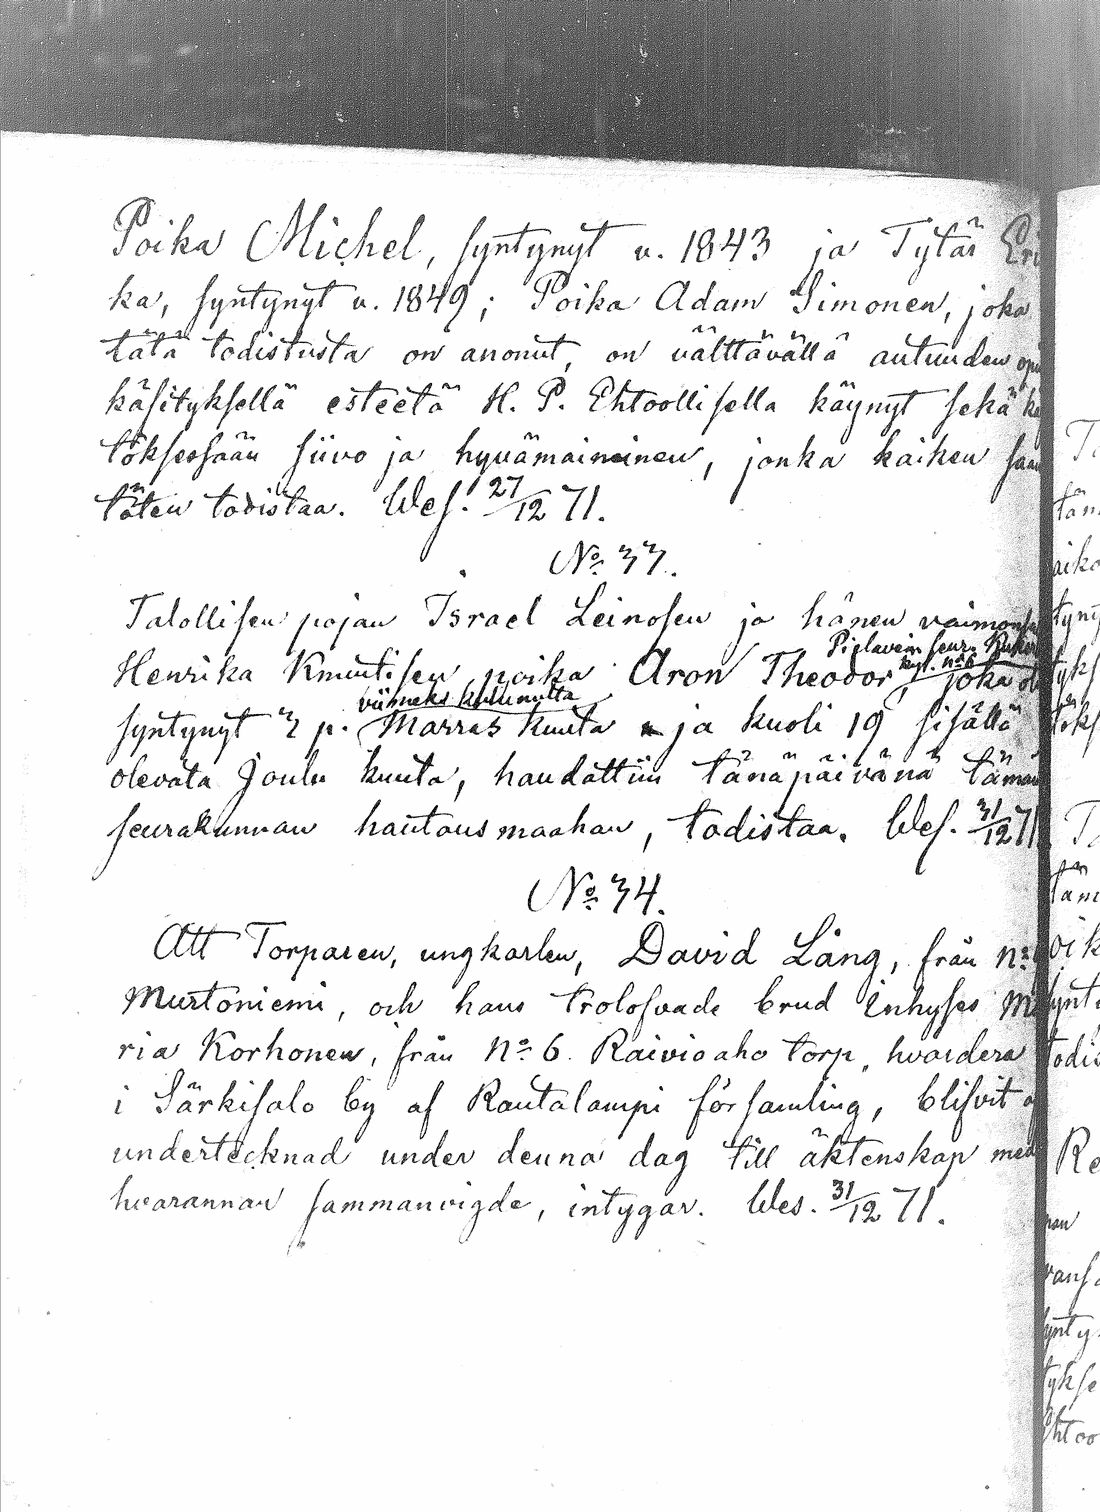 Poika Michel, syntynyt v. 1843 ja Tytär Eri
ka, syntynyt v. 1849; Poika Adam Simonen, joka
tätä todistusta on anonut, on välttävällä autuuden
käsityksellä esteetä H. P. Ehtoollisella käynyt sekä
töksessään siivo ja hyvämaineinen, jonka kaiken
täten todistaa. Wes. 27/12 71.
No 33.
Talollisen pojan Israel Leinosen ja hänen vaimonsa
Pielavein seur.
kyl. no 6
Henrika Knuutisen poika Aron Theodor, joka
viimeks kulunutta
syntynyt 3 p. Marras kuuta ja kuoli 19 sisällä
olevata Joulu kuuta, haudattiin tänäpäivänä tämän
seurakunnan hautausmaahan, todistaa. Wes. 31/12 71
No 34.
Att Torparen, ungkarlen, David Lång, från no
Murtoniemi, och hans trolofvade brud Inhyses Ma
ria Korhonen, från No 6 Raivioaho torp, hvardera
i Särkisalo by af Rautalampi församling, blifvit af
undertecknad under denna dag till äktenskap med
hvarannan sammanvigde, intygar. Wes. 31/12 71.